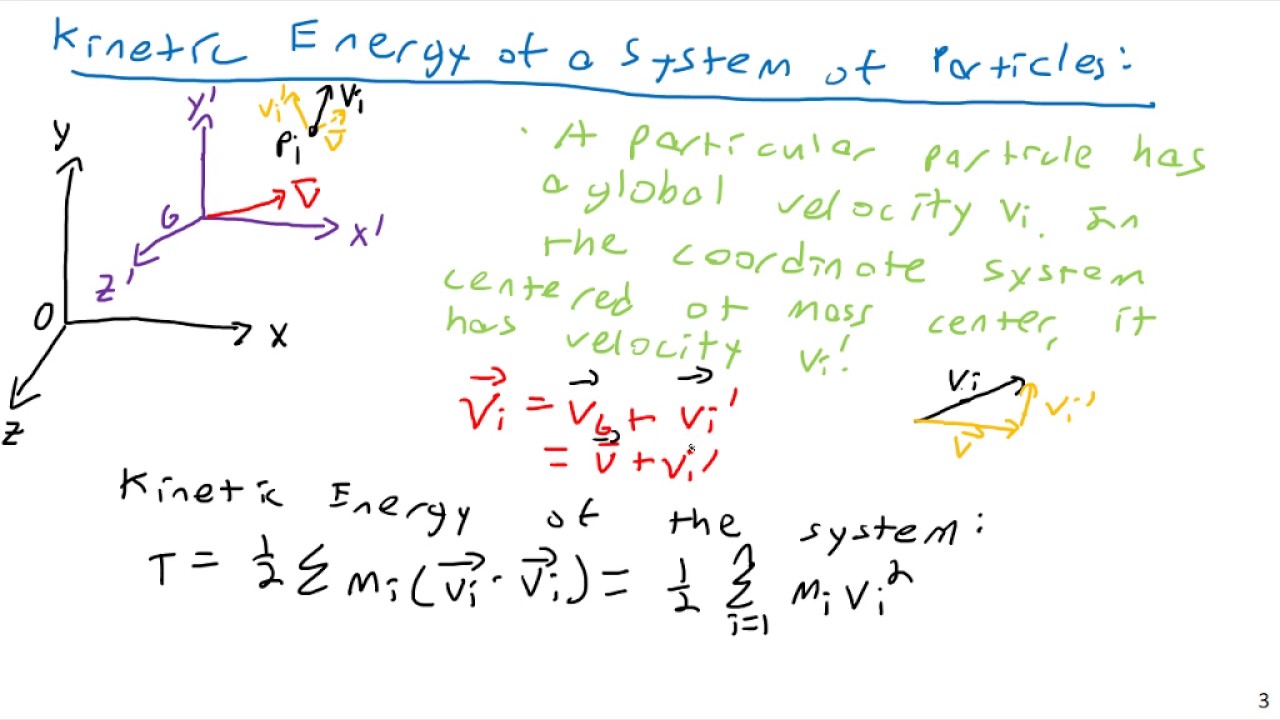 Kinetic Energy of a System of Particles:
Y
Y'
Vi'
Vi
Pi
V̅
G
V̅
X'
Z'
O
X
Z
· A particular particle has
a global velocity Vi. In
the coordinate system
centered at mass center,
has velocity Vi'. it
V⃗i = V⃗G + V⃗i'
= V̅⃗ + Vi'
Vi
Vi'
V̅
Kinetic Energy of the system:
T = 1/2 Σ mi(V⃗i · V⃗i) = 1/2 Σ_{i=1}^{n} mi Vi²
3